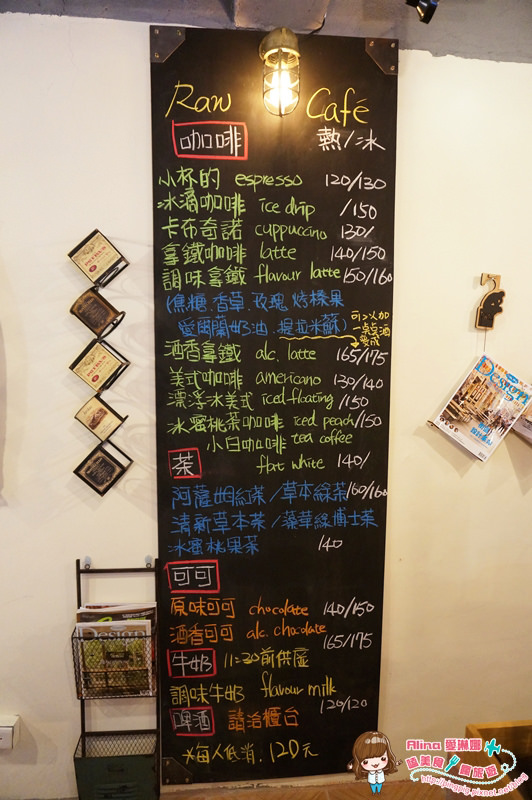 Raw Café
咖啡 熱/冰
小杯的 espresso 120/130
冰滴咖啡 ice drip /150
卡布奇諾 cuppuccino 130/
拿鐵咖啡 latte 140/150
調味拿鐵 flavour latte 150/160
(焦糖.香草.玫瑰.烤榛果
愛爾蘭奶油.提拉米蘇)
可以加
一點酒
變成
酒香拿鐵 alc. latte 165/175
美式咖啡 americano 130/140
漂浮冰美式 iced floating /150
冰蜜桃茶咖啡 iced peach /150
tea coffee
小白咖啡 flat white 140/
茶
阿薩姆紅茶/草本綠茶 160/160
清新草本茶/藻華綠博士茶
冰蜜桃果茶 140
可可
原味可可 chocolate 140/150
酒香可可 alc. chocolate 165/175
牛奶 11:30前供應
調味牛奶 flavour milk 120/120
啤酒 請洽櫃台
*每人低消.120元
Design
Alina 愛琳娜
萌美食 賣旅遊